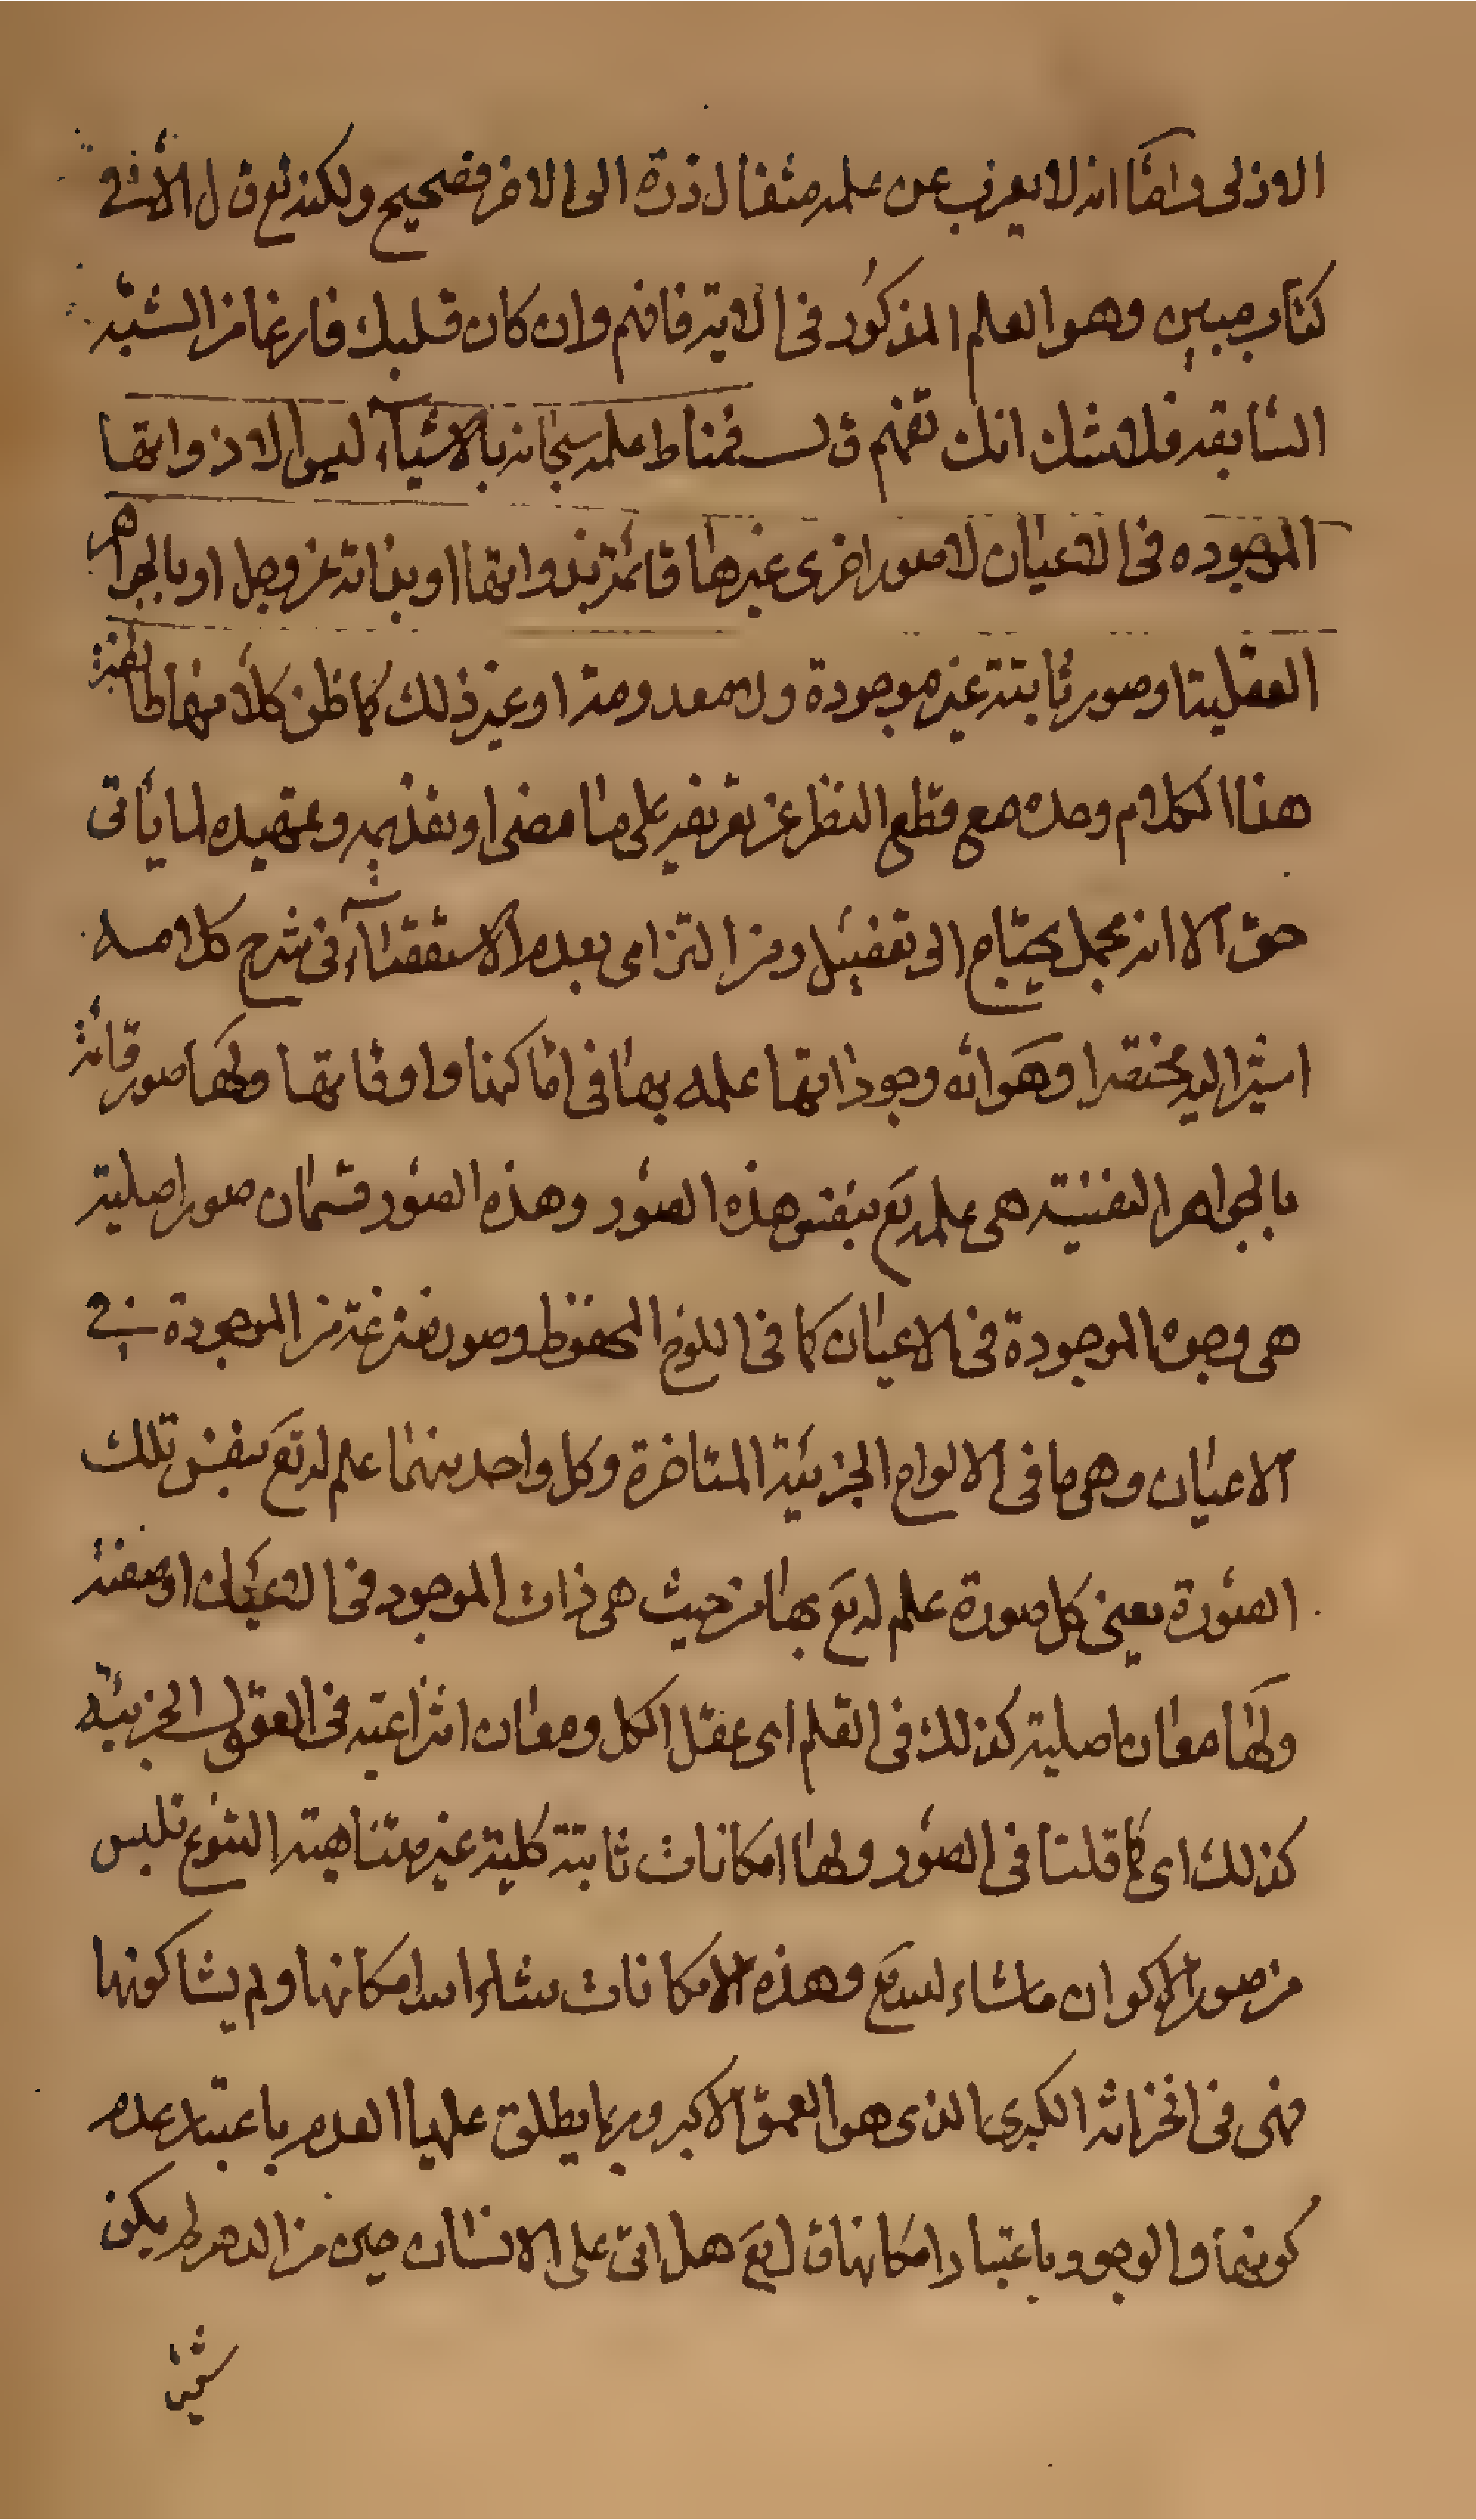 الازلى واما انه لا يعزب عن علمه مثقال ذرة الى الاخر فصحيح ولكنه تع ق ل الا فى
كتاب مبين وهو العلم المذكور فى الاية فافهم وان كان قلبك فارغا من الشبه
السابقه فلا شك انك تفهم ق ل فمناط علمه سبحانه بالاشياء ليس الا ذواتها
الموجوده فى الاعيان لا صور اخرى غيرها قائمة بذواتها او بذاته عز وجل او بالجواهر
العقلية او صور ثابتة غير موجودة ولا معدومة او غير ذلك كما ظن كلا منها طائفة
هذا الكلام وحده مع قطع النظر عن تفريعه على ما مضى او تقديمه وتمهيده لما يأتى
حق الا انه مجمل يحتاج الى تفصيل ومن التزامى بعدم الاستقصاء فى شرح كلامه
اشير اليه مختصرا وهو انه وجود اتها علمه بها فى اماكنها واوقاتها ولها صور قائمة
بالجواهر النفسية هى علمه تع بنفس هذه الصور وهذه الصور قسمان صور اصلية
هى وجوه الموجودة فى الاعيان كما فى اللوح المحفوظ وصور منتزعة من الموجودة فى
الاعيان وهى ما فى الالواح الجزئية المتاخرة وكل واحد منهما علم له تع بنفس تلك
الصورة يعنى كل صورة علم له تع بها من حيث هى ذات الموجود فى الاعيان او صفته
ولها معان اصلية كذلك فى القلم اى عقل الكل ومعان انتزاعية فى العقول الجزئية
كذلك اى كما قلنا فى الصور ولها امكانات ثابتة كلية غير متناهية التنوع تلبس
من صور الاكوان ما شاء الله تع وهذه الامكانات شاء الله امكانها ولم يشا كونها
فهى فى الخزانة الكبرى الذى هو العمق الاكبر وربما يطلق عليها العدم باعتبار عدم
كونها والوجود باعتبار امكانها ق ل تع هل اتى على الانسان حين من الدهر لم يكن
شيئا